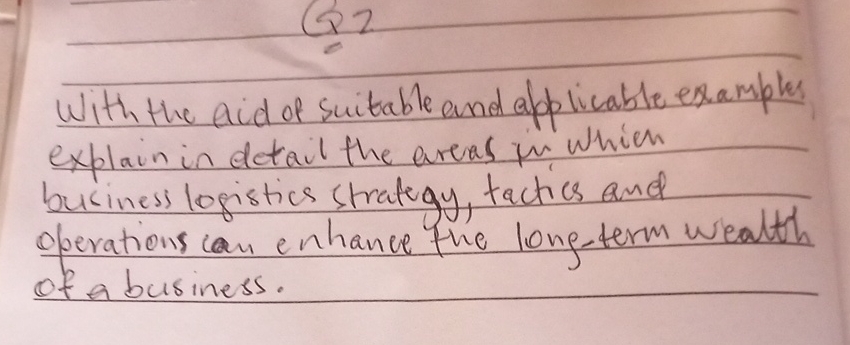 Q2
With the aid of suitable and applicable examples,
explain in detail the areas in which
business logistics strategy, tactics and
operations can enhance the long-term wealth
of a business.